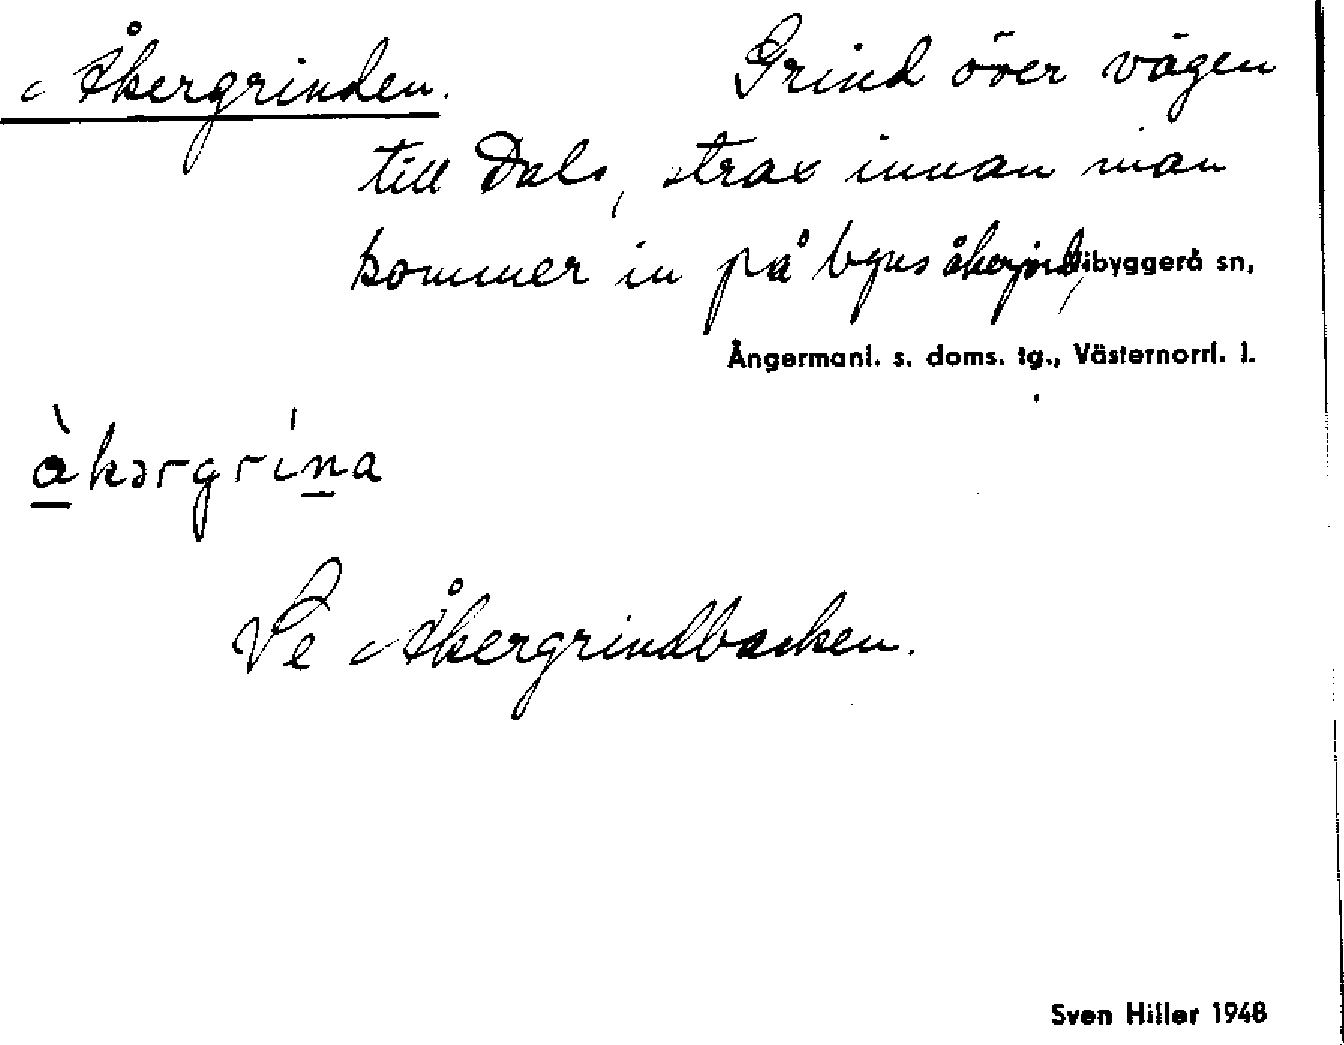 Åkergrinden. Grind över vägen
till Dals, strax innan man
kommer in på byns åkerjord,
ibyggerå sn,
Ångermanl. s. doms. tg., Västernorrl. l.
åkərgrína
Se Åkergrindbacken.
Sven Hiller 1948